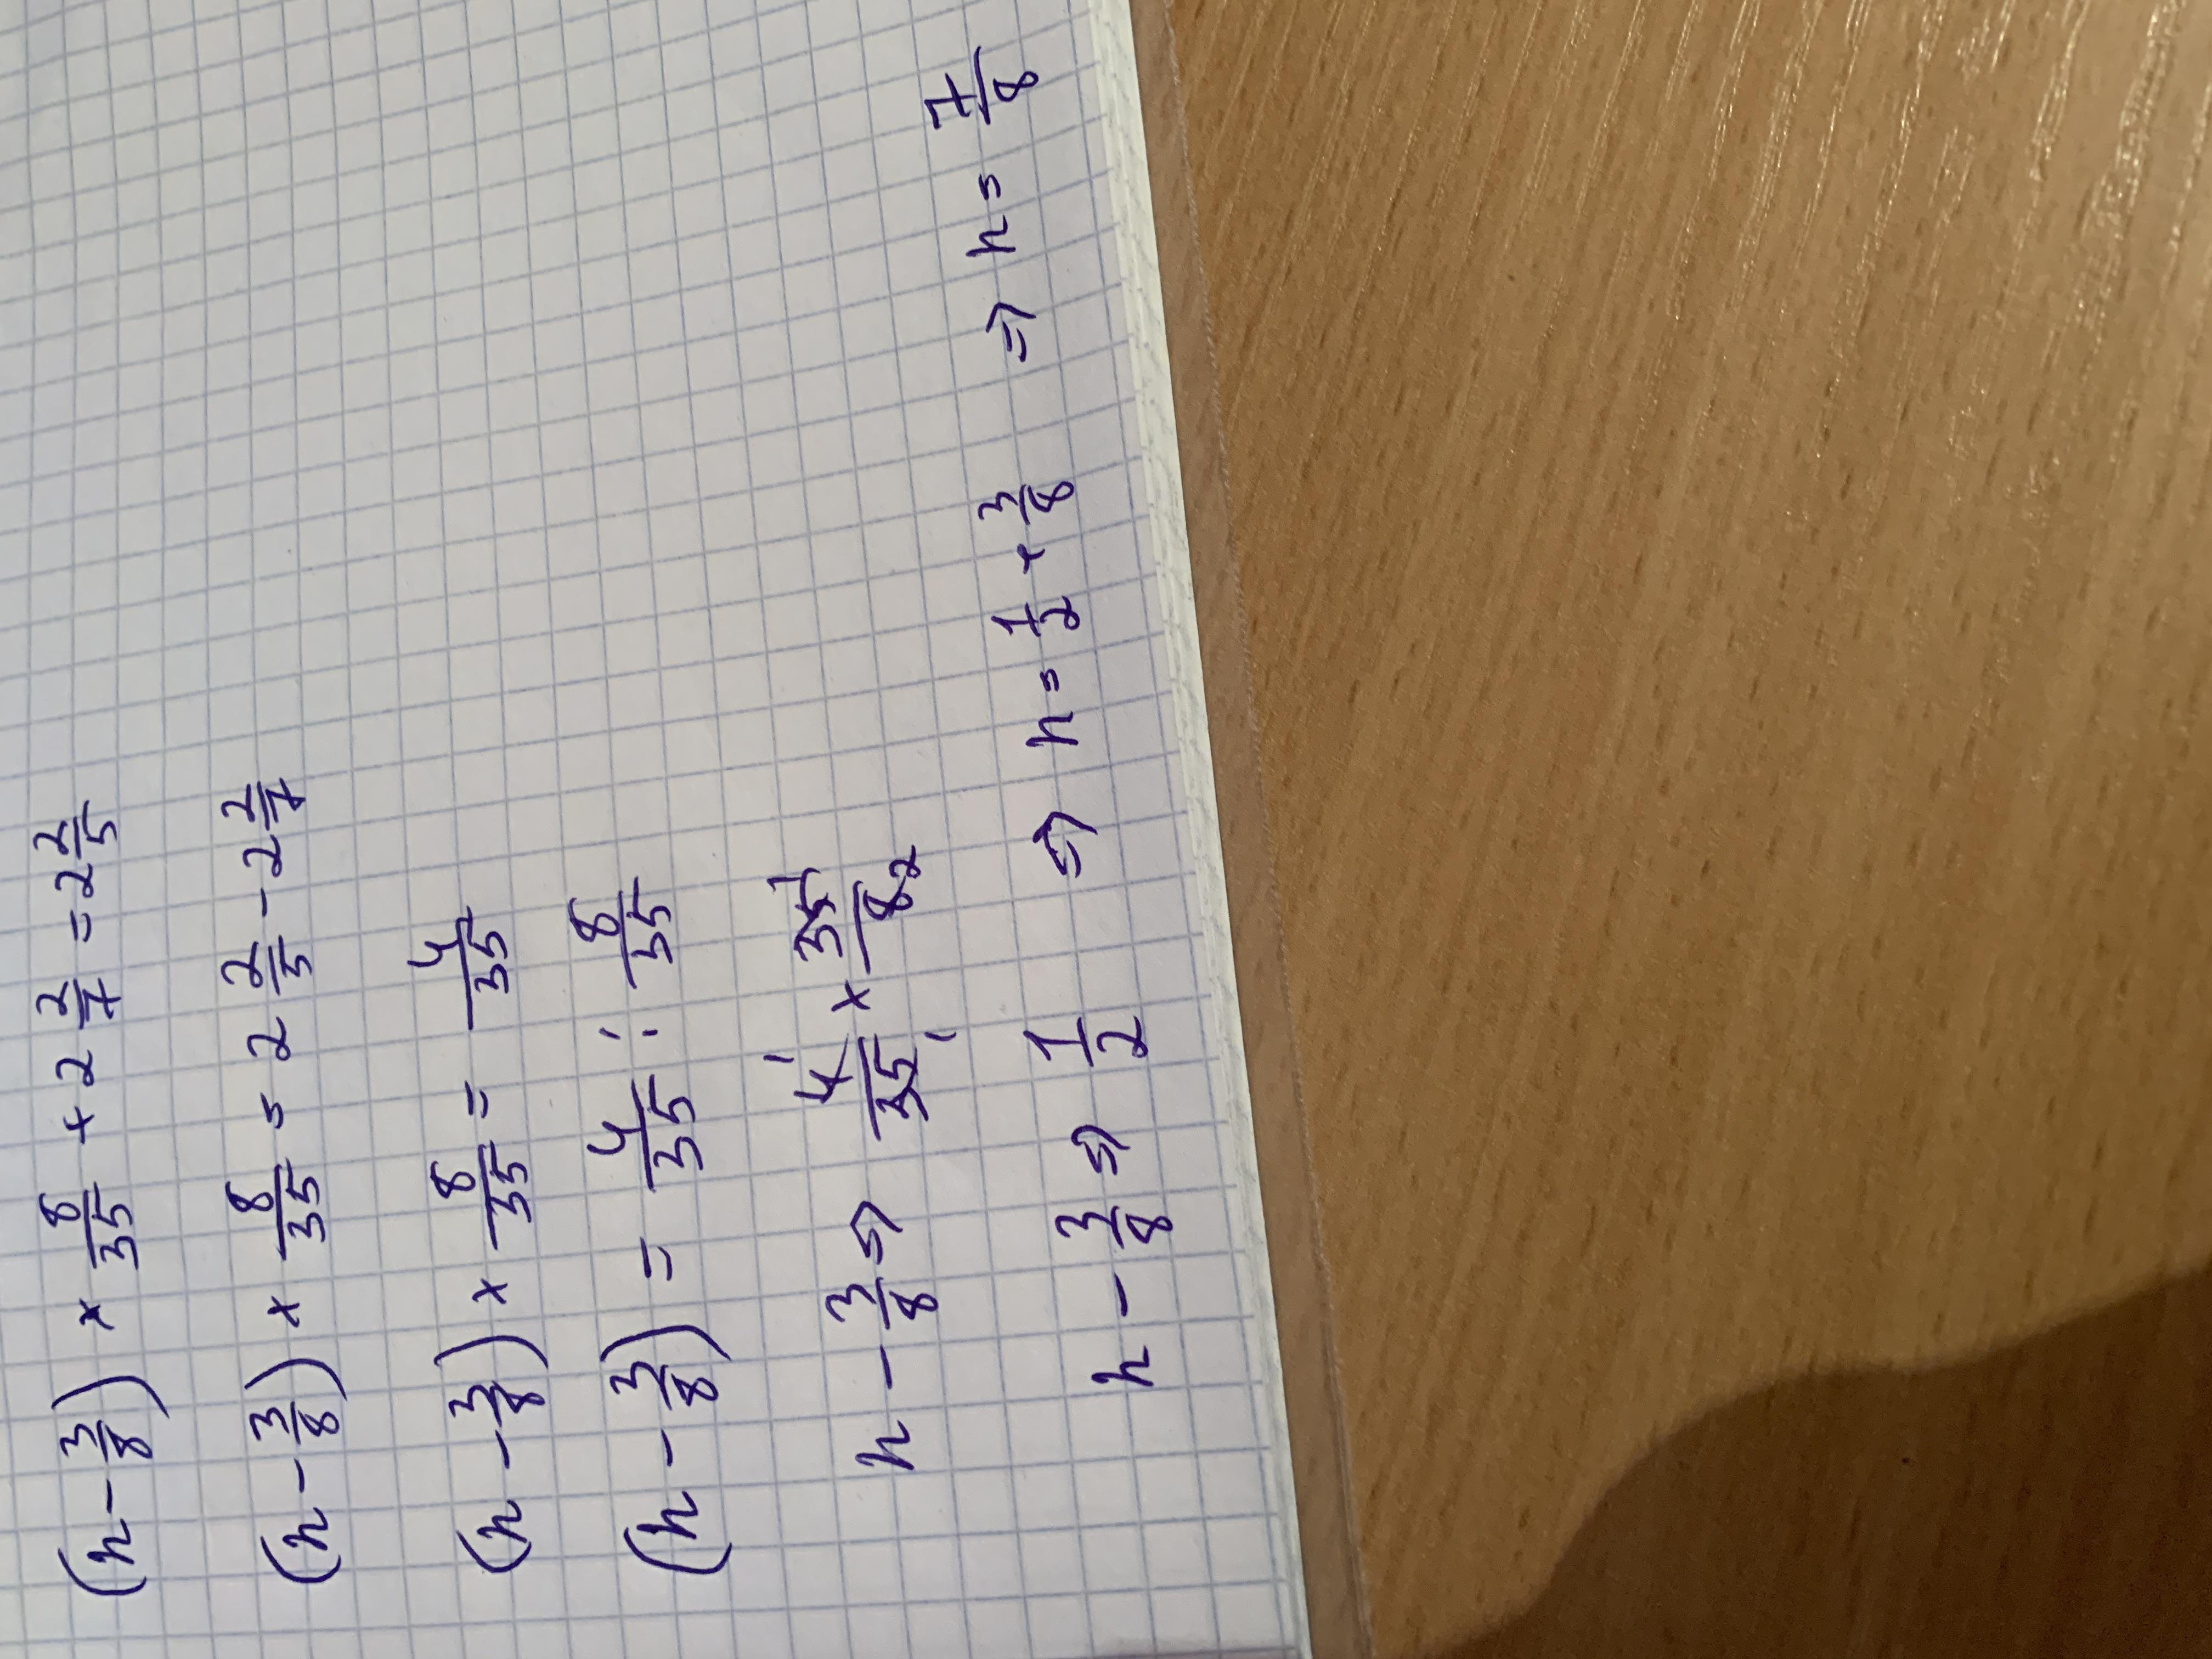 (n - 3/8) × 8/35 + 2 2/7 = 2 2/5
(n - 3/8) × 8/35 = 2 2/5 - 2 2/7
(n - 3/8) × 8/35 = 4/35
(n - 3/8) = 4/35 : 8/35
n - 3/8 => 4 1/35 1 × 35 1/8 2
n - 3/8 => 1/2 => n = 1/2 + 3/8 => n = 7/8